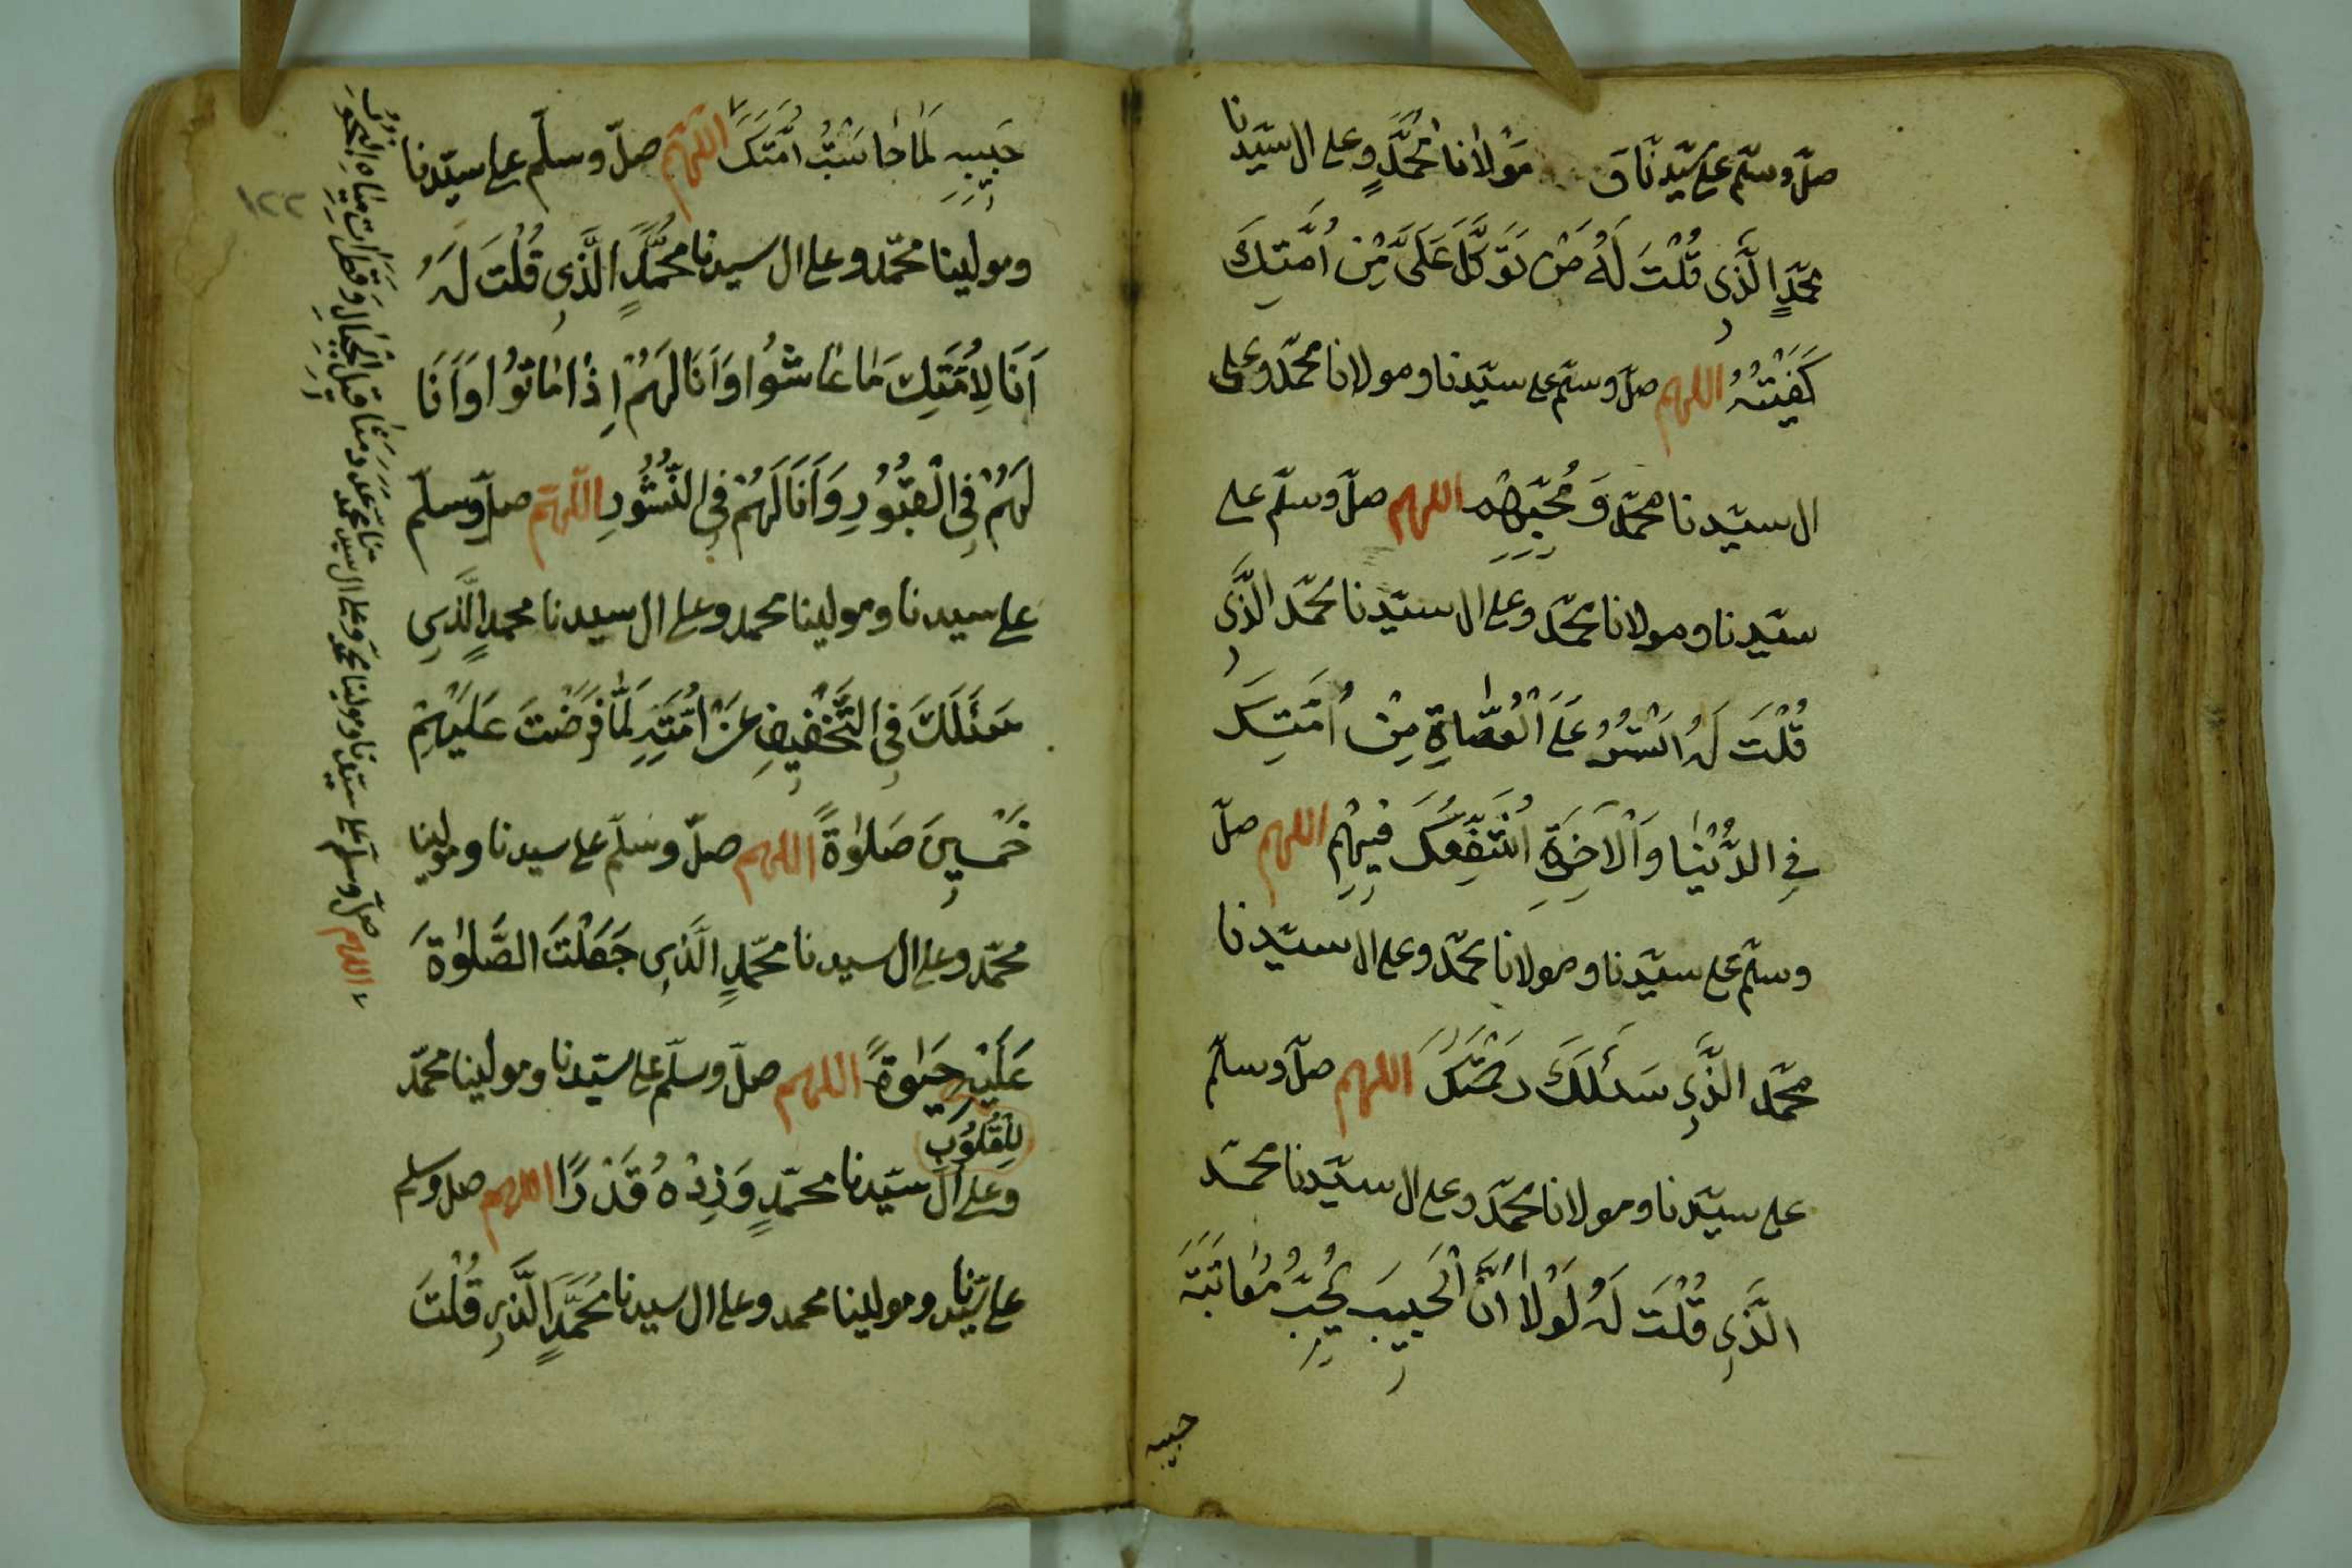 صلّ وسلّم على سيّدنا و مولانا محمّدٍ وعلى ال سيّدنا
محمّدٍ الّذى قُلْتَ لَهُ مَنْ تَوَكَّلَ عَلَىَّ مِنْ اُمَّتِكَ
كَفَيْتُهُ اللهم صلّ وسلّم على سيّدنا ومولانا محمّد وعلى
ال سيّدنا محمّد وَ مُحِبِّيهِ اللهم صلّ وسلّم على
سيّدنا ومولانا محمّد وعلى ال سيّدنا محمّد الّذى
قُلْتَ لَهُ اَسْتُرُ عَلَى الْعُصَاةِ مِنْ اُمَّتِكَ
فِى الدُّنْيَا وَالْاٰخِرَةِ فِيهِمْ اللهم صلّ
وسلّم على سيّدنا ومولانا محمّد وعلى ال سيّدنا
محمّد الّذِى سَئَلَكَ اللهم صلّ وسلّم
على سيّدنا ومولانا محمّد وعلى ال سيّدنا محمّد
الَّذِى قُلْتَ لَهُ لَوْلَا اَنَّ الْحَبِيبَ يُحِبُّ مُعَاتَبَةَ
حبيبه
١٢٢
حَبِيبِهِ لَمَا حَاسَبْتُ اُمَّتَكَ اللّهمّ صلّ وسلّم على سيّدنا
ومولينا محمّد وعلى ال سيدنا محمَّدٍ الَّذِى قُلْتَ لَهُ
اَنَا لِاُمَّتِكَ مَا عَاشُوا وَاَنَا لَهُمْ اِذَا مَاتُوا وَاَنَا
لَهُمْ فِى الْقُبُورِ وَاَنَا لَهُمْ فِى النُّشُورِ اللّهمّ صلّ وسلّم
على سيدنا ومولينا محمد وعلى ال سيدنا محمدٍ الَّذِى
سَئَلَكَ فِى التَّخْفِيفِ عَنْ اُمَّتِهِ لَمَّا فَرَضْتَ عَلَيْهِمْ
خَمْسِينَ صَلٰوةً اللهم صلّ وسلّم على سيدنا ومولينا
محمّد وعلى ال سيدنا محمّدٍ الَّذِى جَعَلْتَ الصَّلٰوةَ
عَلَيْهِ حَيٰوةً اللهم صلّ وسلّم على سيّدنا ومولينا محمّد
لِلْقُلُوبِ
وعلى ال سيّدنا محمّدٍ وَزِدْهُ قَدْرًا اللهم صل وسلم
على سيّدنا ومولينا محمد وعلى ال سيدنا مُحَمَّدٍ الَّذِى قُلْتَ
اللهم صلّ وسلّم على سيّدنا ومولينا محمّد وعلى ال سيدنا محمد